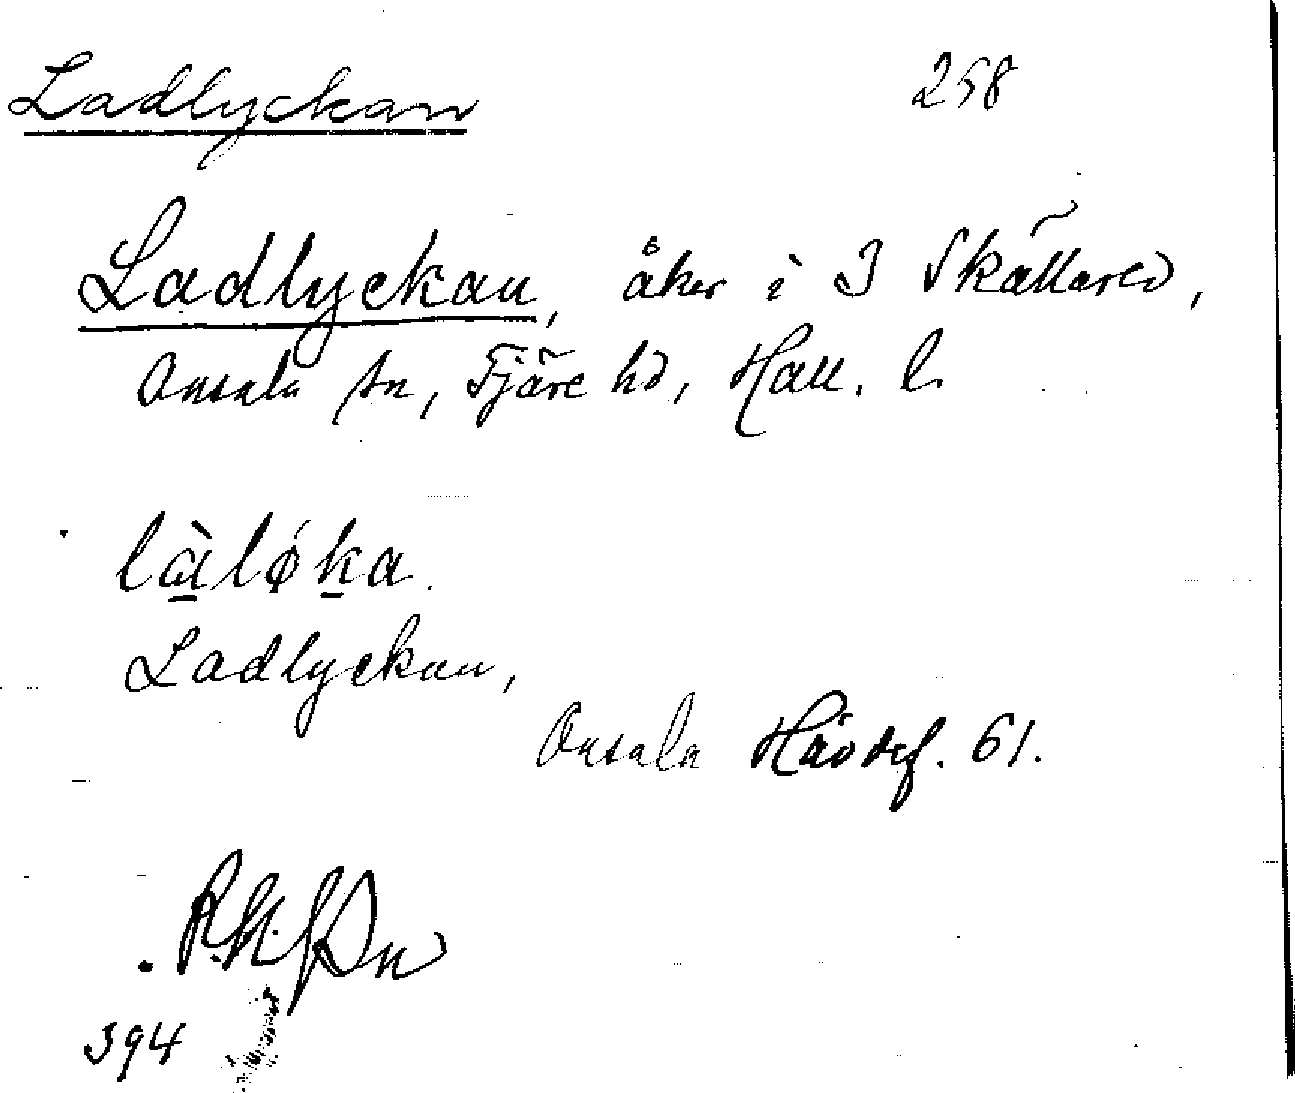 Ladlyckan 258
Ladlyckan, åker i 3 Skällared,
Onsala sn, Fjäre hd, Hall. l.
làløka.
Ladlyckan,
Onsala Hävdef. 61.
394